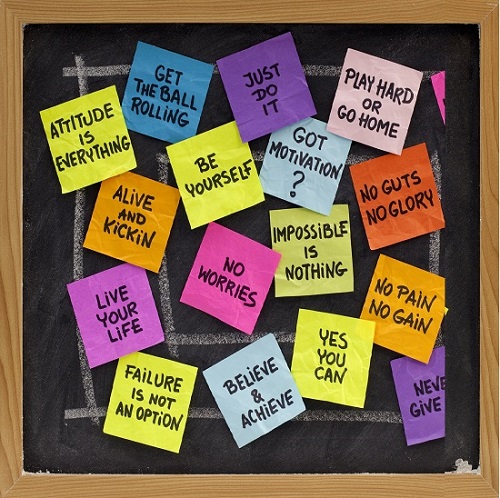 GET
THE BALL
ROLLING
JUST
DO
IT
PLAY HARD
OR
GO HOME
ATTITUDE
IS
EVERYTHING
BE
YOURSELF
GOT
MOTIVATION
?
NO GUTS
NO GLORY
ALIVE
AND
KICKIN
NO
WORRIES
IMPOSSIBLE
IS
NOTHING
NO PAIN
NO GAIN
LIVE
YOUR
LIFE
YES
YOU
CAN
FAILURE
IS NOT
AN OPTION
BELIEVE
&
ACHIEVE
NEVE
GIVE